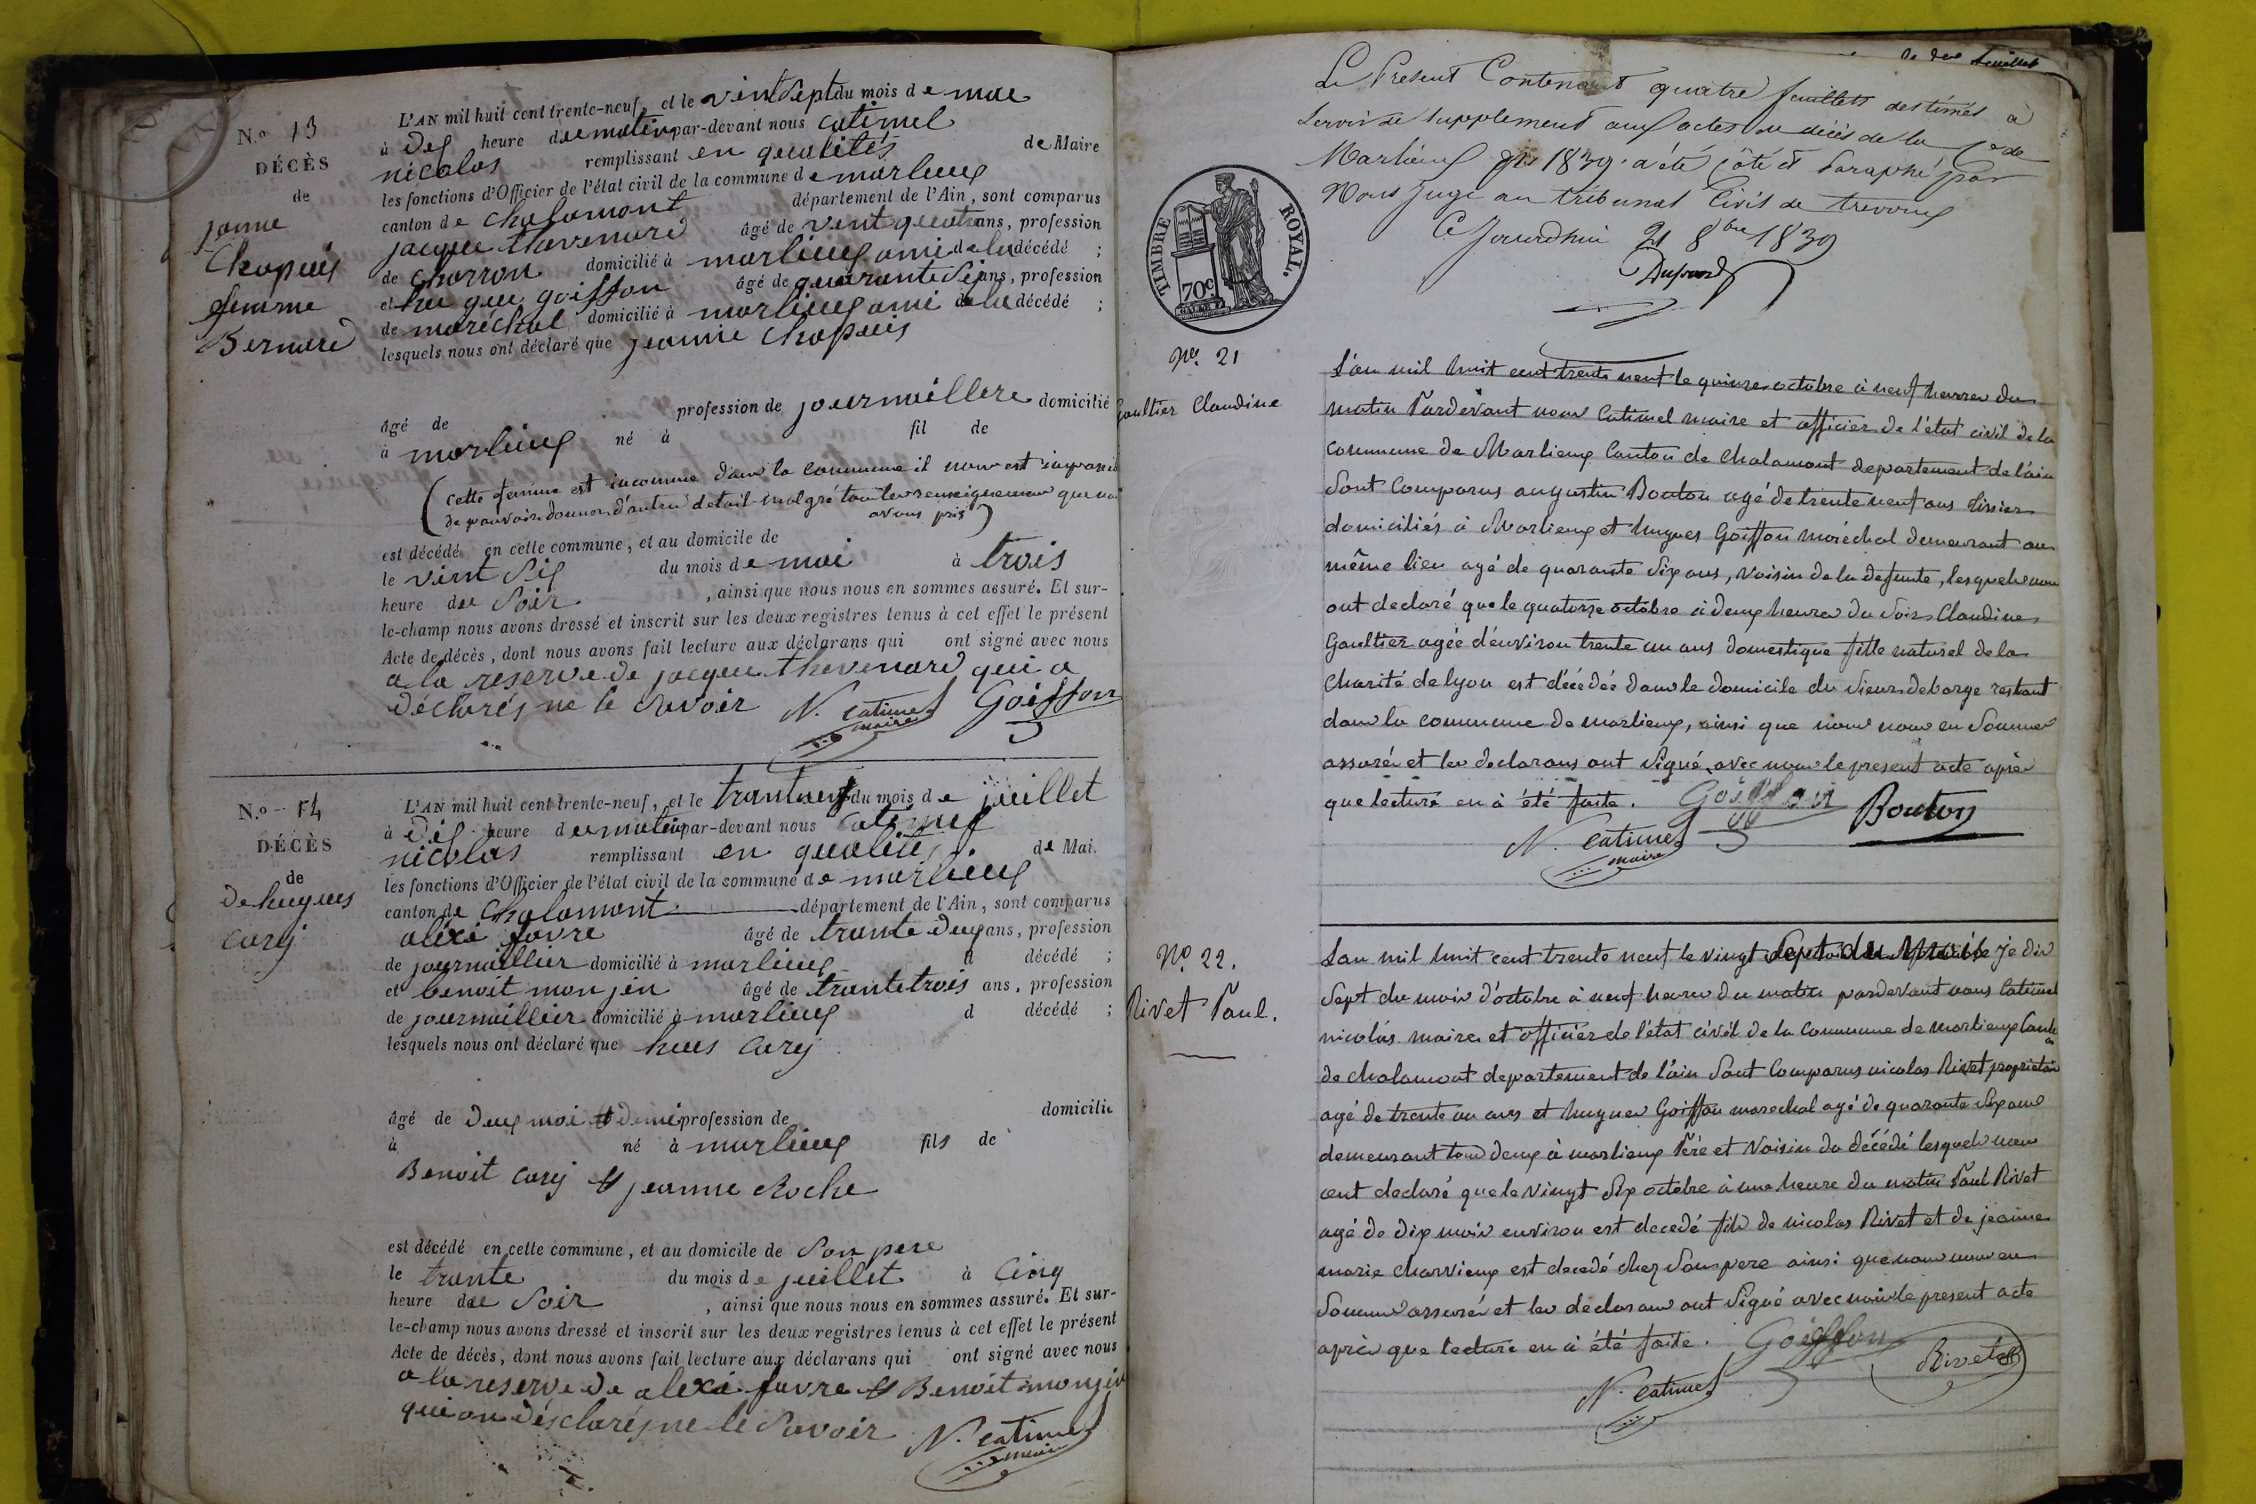 N.o 13
DÉCÈS
de
janne
Chapuis
femme
Bernard
L'AN mil huit cent trente-neuf, et le vint Sept du mois de mae
à Dix heure du matin par-devant nous Catimel
nicolas remplissant en qualités de Maire
les fonctions d'Officier de l'état civil de la commune de marlieux
canton de Chalamont département de l'Ain, sont comparus
jacque thevenard âgé de vent quatre ans, profession
de Charron domicilié à marlieux ami de la décédé ;
et hu gue goiffon âgé de quarante Six ans, profession
de maréchal domicilié à marlieux ami de la décédé ;
lesquels nous ont déclaré que jeanne Chapuis
âgé de profession de journaillere domicilié
à marlieux né à fil de
(Cette femme est inconnue dans la Commune il nous est impossible
de pouvoir donner d'autres détail malgré tous les renseignemens que nous
avons pris)
est décédé en cette commune, et au domicile de
le vint Six du mois de mai à trois
heure du Soir , ainsi que nous nous en sommes assuré. Et sur-
le-champ nous avons dressé et inscrit sur les deux registres tenus à cet effet le présent
Acte de décès, dont nous avons fait lecture aux déclarans qui ont signé avec nous
a la reserve de jacque thevenard qui a
déclarés ne le Savoir N. Catimel Goiffon
maire
N.o 14
DÉCÈS
de
De hugues
Carij
L'AN mil huit cent trente-neuf, et le du mois de juillet
à Dix heure du matin par-devant nous Catimel
nicolas remplissant en qualité de Mai.
les fonctions d'Officier de l'état civil de la commune de marlieux
canton de Chalamont département de l'Ain, sont comparus
aléxi favre âgé de trante deux ans, profession
de journaillier domicilié à marlieux d décédé ;
et benoit mon jin âgé de trante trois ans, profession
de journaillier domicilié à marlieux d décédé ;
lesquels nous ont déclaré que hues Carij
âgé de Deux moi et demi profession de domicilié
à né à marlieux fils de
Benoit Carij et jeanne Roche
est décédé en cette commune, et au domicile de Son pere
le trante du mois de juillet à Cinq
heure du Soir , ainsi que nous nous en sommes assuré. Et sur-
le-champ nous avons dressé et inscrit sur les deux registres tenus à cet effet le présent
Acte de décès, dont nous avons fait lecture aux déclarans qui ont signé avec nous
a la reserve de alexi favre et Benoit monjin
qui on désclarés ne le Savoir N. Catimel
maire
feuillet
Le Present Contenant quatre feuillets destinés à
servir de supplement aux actes de décès de la Cne de
Marlieux pr 1839. a été Côté et Paraphé par
Nous juge au tribunal Civil de trevoux
Ce jourdhui 21 8bre 1839
TIMBRE ROYAL.
70c
No. 21
Gaultier Claudine
L'an mil huit cent trente neuf le quinze octobre à neuf heures du
matin Pardevant nous Catimel maire et officier de l'état civil de la
commune de Marlieux Canton de Chalamont departement de l'ain
Sont Comparus augustin Bouton agé de trente neuf ans tissier
domiciliés à Marlieux et hugues Goiffon maréchal demeurant au
même lieu agé de quarante Six ans, Voisin de la defunte, lesquels nous
ont declaré que le quatorze octobre à deux heures du Soir Claudine
Gaultier agée d'environ trente un ans domestique fille naturel de la
Charité de lyon est décédée dans le domicile du Sieur deborge restant
dans la commune de marlieux, ainsi que nous nous en Sommes
assurés et les declarans ont Signé avec nous le present acte après
que lecture en à été faite. Goiffon Bouton
N. Catimel
maire
No. 22.
Rivet Paul.
L'an mil huit cent trente neuf le vingt Sept du Mois je dis
Sept du mois d'octobre à neuf heures du matin pardevant nous Catimel
nicolas maire et officier de l'état civil de la Commune de Marlieux Canton
de chalamont departement de l'ain Sont Comparus nicolas Rivet proprietaire
agé de trente un ans et hugues Goiffon marechal agé de quarante Six ans
demeurant tous deux à marlieux Péré et Voisin du décédé lesquels nous
ont declaré que le Vingt Six octobre à une heure du matin Paul Rivet
agé de dix mois environ est decedé fils de nicolas Rivet et de jeanne
marie charvieux est decedé chez Son pere ainsi que nous nous en
Sommes assurés et les declarans ont Signé avec nous le present acte
après que lecture en à été faite. Goiffon Rivet
N. Catimel